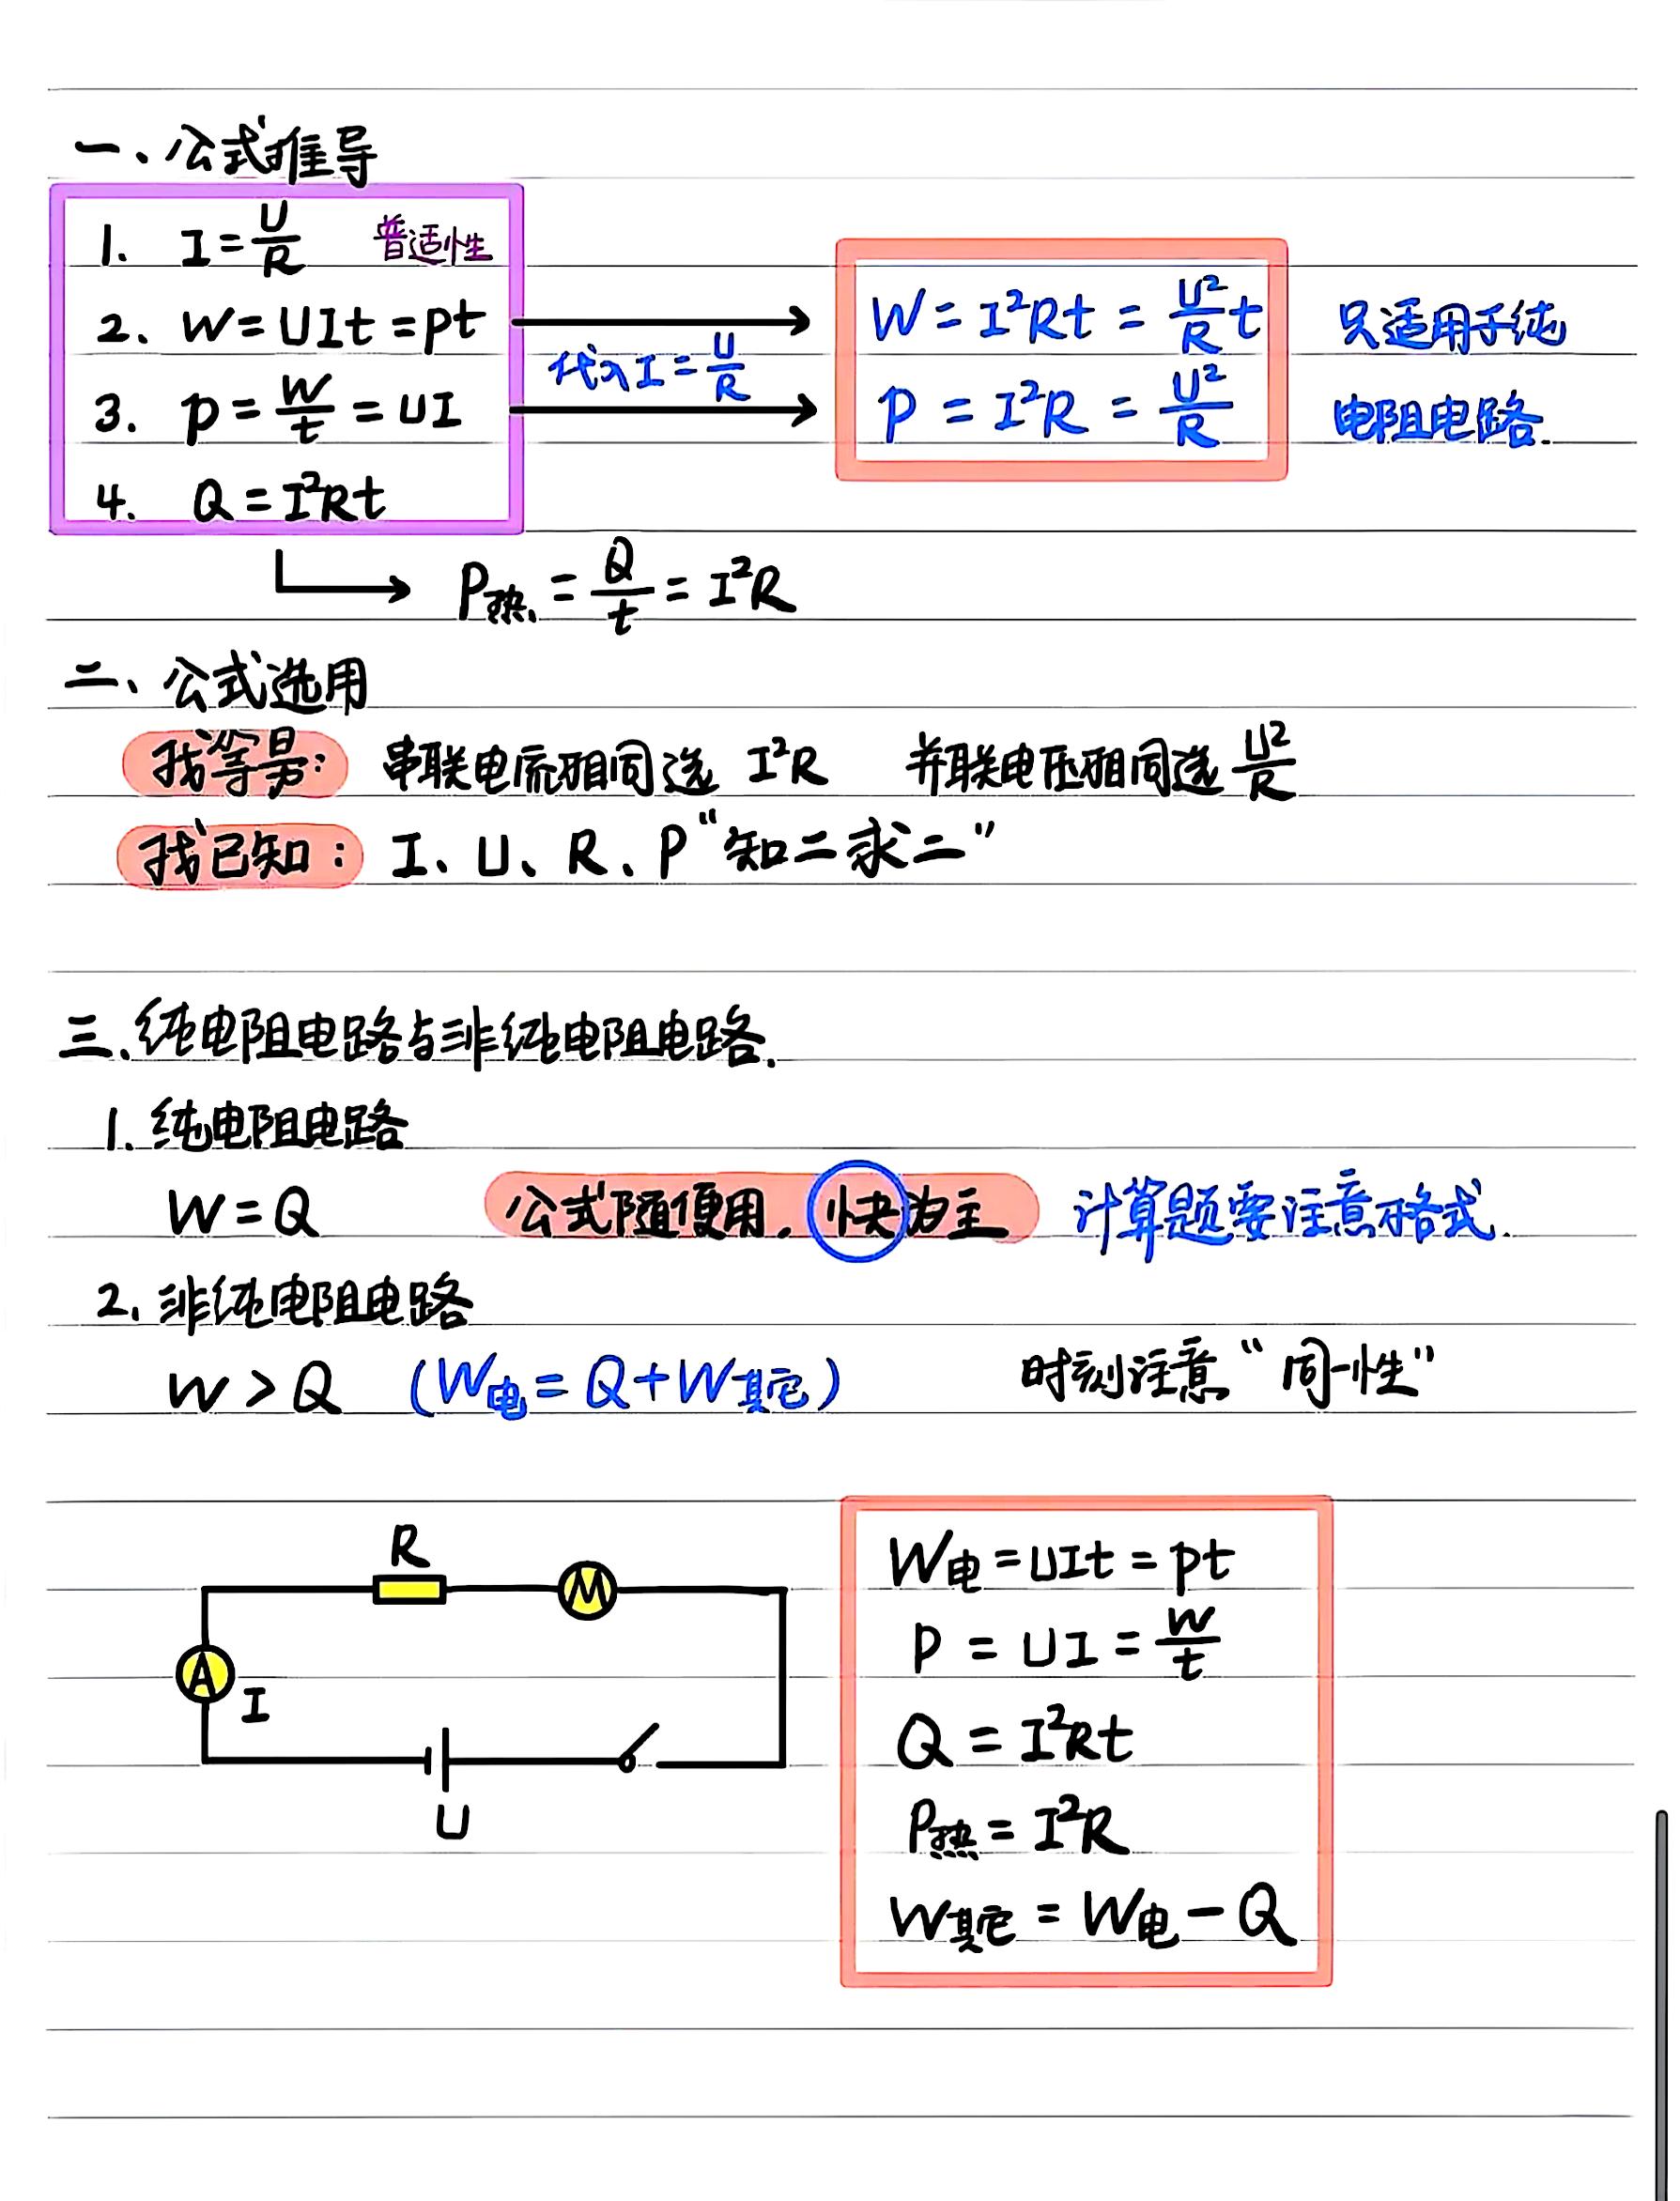 一、公式推导
1. I=U/R 普适性
2. W=UIt=pt → W=I²Rt=U²/R t 只适用于纯
代入I=U/R
3. p=W/t=UI → P=I²R=U²/R 电阻电路.
4. Q=I²Rt
→ P热=Q/t=I²R
二、公式选用
找等量: 串联电流相同选 I²R 并联电压相同选 U²/R
找已知: I、U、R、P“知二求二”
三、纯电阻电路与非纯电阻电路.
1. 纯电阻电路
W=Q 公式随便用,快为主 计算题要注意格式.
2. 非纯电阻电路
W>Q (W电=Q+W其它) 时刻注意“同一性”
R
M
A
I
U
W电=UIt=pt
P=UI=W/t
Q=I²Rt
P热=I²R
W其它=W电-Q